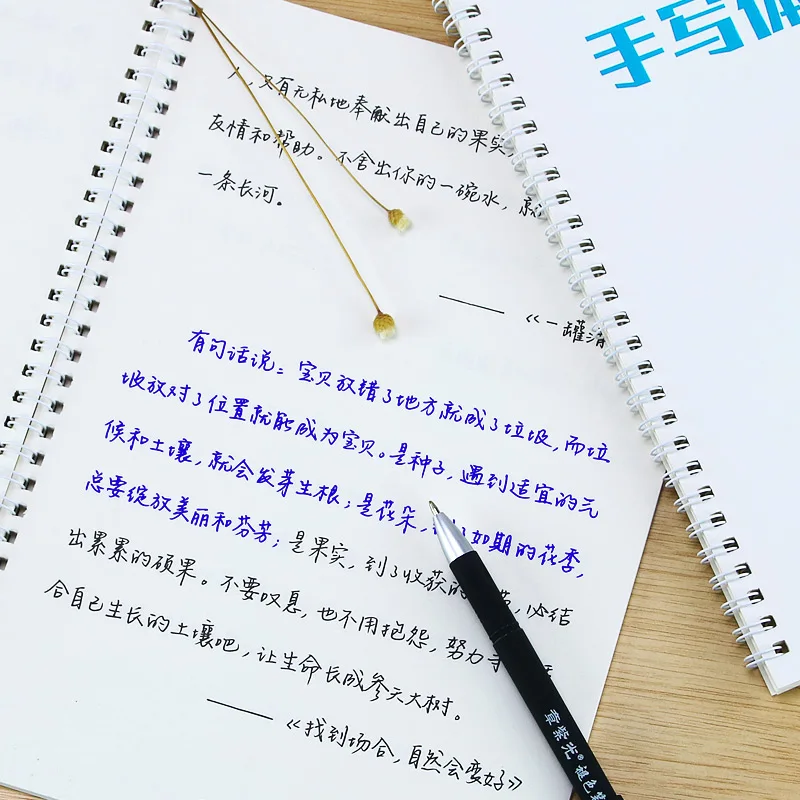 手写体
人,只有无私地奉献出自己的果实
友情和帮助。不舍出你的一碗水,就
一条长河。
——《一罐清
有句话说:宝贝放错了地方就成了垃圾,而垃
圾放对了位置就能成为宝贝。是种子,遇到适宜的气
候和土壤,就会发芽生根;是花朵,了如期的花季,
总要绽放美丽和芬芳;是果实,到了收获的 ,必结
出累累的硕果。不要叹息,也不用抱怨,努力寻
合自己生长的土壤吧,让生命长成参天大树。
——《找到场合,自然会变好》
章紫光® 褪色